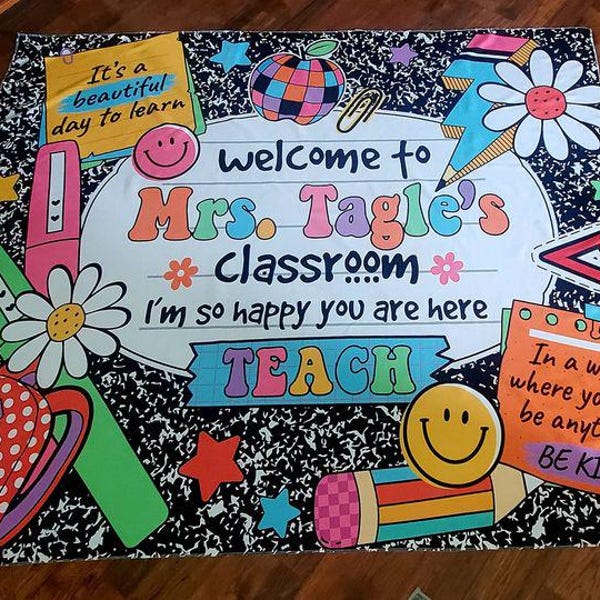 It's a
beautiful
day to learn
welcome to
Mrs. Tagle's
classroom
I'm so happy you are here
TEACH
In a
where
be
BE